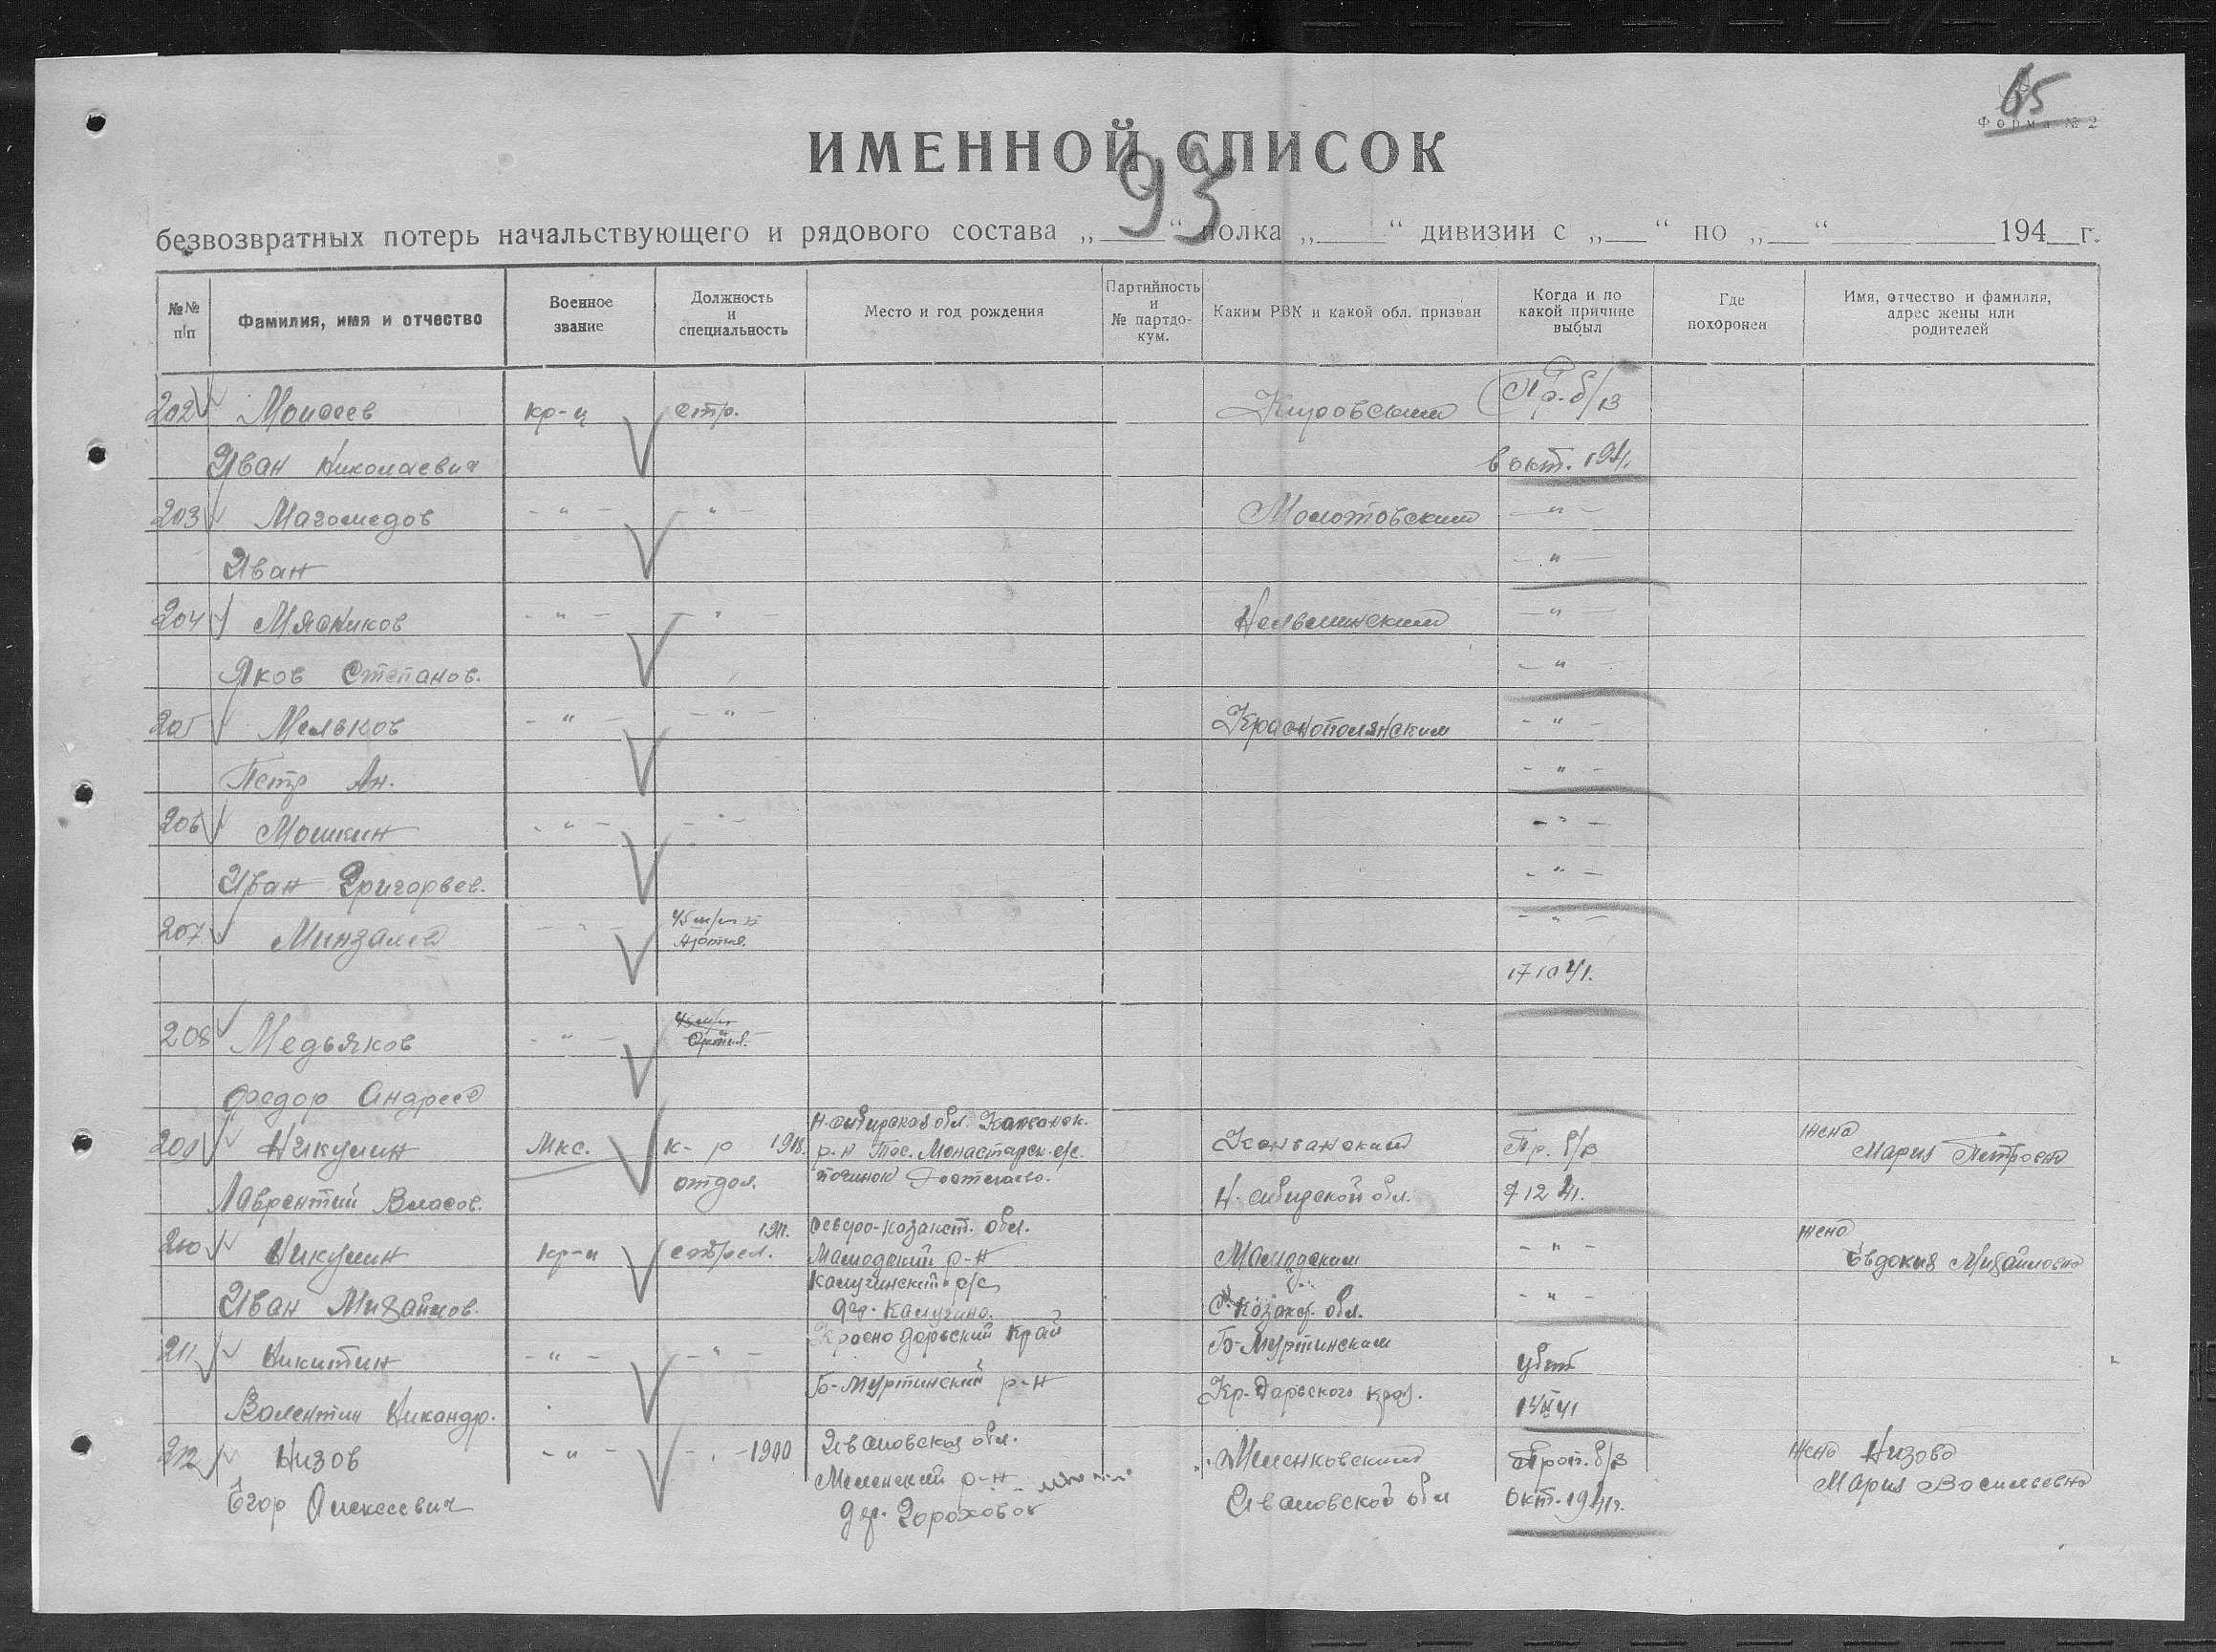 65
Форма № 2
ИМЕННОЙ СПИСОК
93
безвозвратных потерь начальствующего и рядового состава „ “ полка „ “ дивизии с „ “ по „ “ 194 г.
№№ п/п
Фамилия, имя и отчество
Военное звание
Должность и специальность
Место и год рождения
Партийность и № партдокум.
Каким РВК и какой обл. призван
Когда и по какой причине выбыл
Где похоронен
Имя, отчество и фамилия, адрес жены или родителей
202 Моисеев кр-ц стр. Кировским Пр. б/в
Иван Николаевич в окт. 1941.
203 Магомедов - " - - " - Молотовским - " -
Иван - " -
204 Мясников - " - - " - - " -
Яков Степанов. - " -
205 Мельков - " - - " - Краснополянским - " -
Петр Ан. - " -
206 Мошкин - " - - " - - " -
Иван Григорьев. - " -
207 - " - - " -
17 10 41.
208 Медьяков - " -
Федор Андреев
209 Никулин Мкс. к-р 1918. Н-сибирская обл.
р-н Монастырск. с/с. Пр. б/в жена Мария Петровна
Лаврентий Власов. отдел. починок Н-сибирской обл. 7 12 41.
210 Никулин кр-ц стрел. 1911. Северо-Казахст. обл.
р-н - " - жена Евдокия Михайловна
Иван Михайлов. с/с С-Казахс. обл. - " -
дер. Калугино.
211 Никитин - " - - " - Красноярский край Б-Муртинским убит
Валентин Никандр. Б-Муртинский р-н Кр-Ярского края. 41
212 Низов - " - - " - 1900 Ивановская обл. Меленковский Проп. б/в жена Низова
Егор Алексеевич р-н Ивановской обл окт. 1941г. Мария Васильевна
дер.